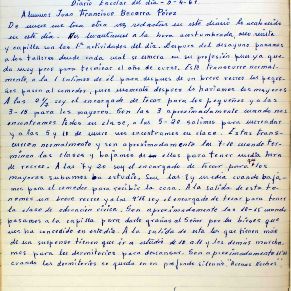 Diario Escolar del día -9-4-64
Alumno: Juan Francisco Becerra Pérez
De nuevo me toca otra vez redactar en este diario lo acontecido
en este día. Nos levantamos a la hora acostumbrada,
y capilla son las 1ª actividades del día. Despues del desayuno pasamos
a los talleres donde cada cual se esmera en su profesión
da muy poco para terminar el año de curso. El B transcurre normal-
mente, a la 1 salimos de él para despues de un breve recreo los peque-
ños pasen al comedor, pues momento despues lo hariamos los mayores
A las 2½ soy el encargado de tocar para los pequeños y a las
3-10 para los mayores. Son las 3 aproximadamente cuando nos
encontramos todos en clase, a las 5-20 salimos para merendar
y a las 5 y 10 de nuevo nos encontramos en clase. Estas trans-
curren normalmente y son aproximadamente las 7-10 cuando ter-
minan las clases y bajamos de ellas para tener media hora
de recreo. A las 7 y 20 soy el encargado de tocar para los
mayores subamos a estudio, Son las 8 y media cuando baja-
mos para el comedor para recibir la cena. A la salida de esta te-
nemos un breve recreo y a las 9¼ soy el encargado de tocar para tener
la clase de educación cívica. Son aproximadamente las 10-15 cuando
pasamos a la capilla para darle gracias al Señor por los bienes que
nos ha concedido en este día. A la salida de esta los que tienen más
de un suspenso tienen que ir a estudio de 10 a 11 y los demás marcha-
mos para los dormitorios para descansar. Son aproximadamente
cuando los dormitorios se queda en un profundo silencio. Buenas Noches.